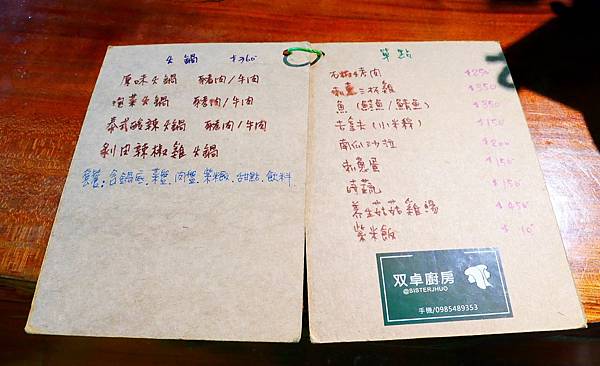 火鍋 $360
原味火鍋 豬肉/牛肉
泡菜火鍋 豬肉/牛肉
泰式酸辣火鍋 豬肉/牛肉
剝皮辣椒雞火鍋
套餐:含鍋底.菜盤.肉盤.紫米飯.甜點.飲料
單點
石板烤肉 $250
三杯雞 $350
魚 (鱘魚/鱒魚) $350
(小米粽) $150
南瓜沙拉 $200
蛋 $150
時蔬 $150
養生菇菇雞湯 $450
紫米飯 $10
双卓廚房
@SISTERJHUO
手機/0985489353